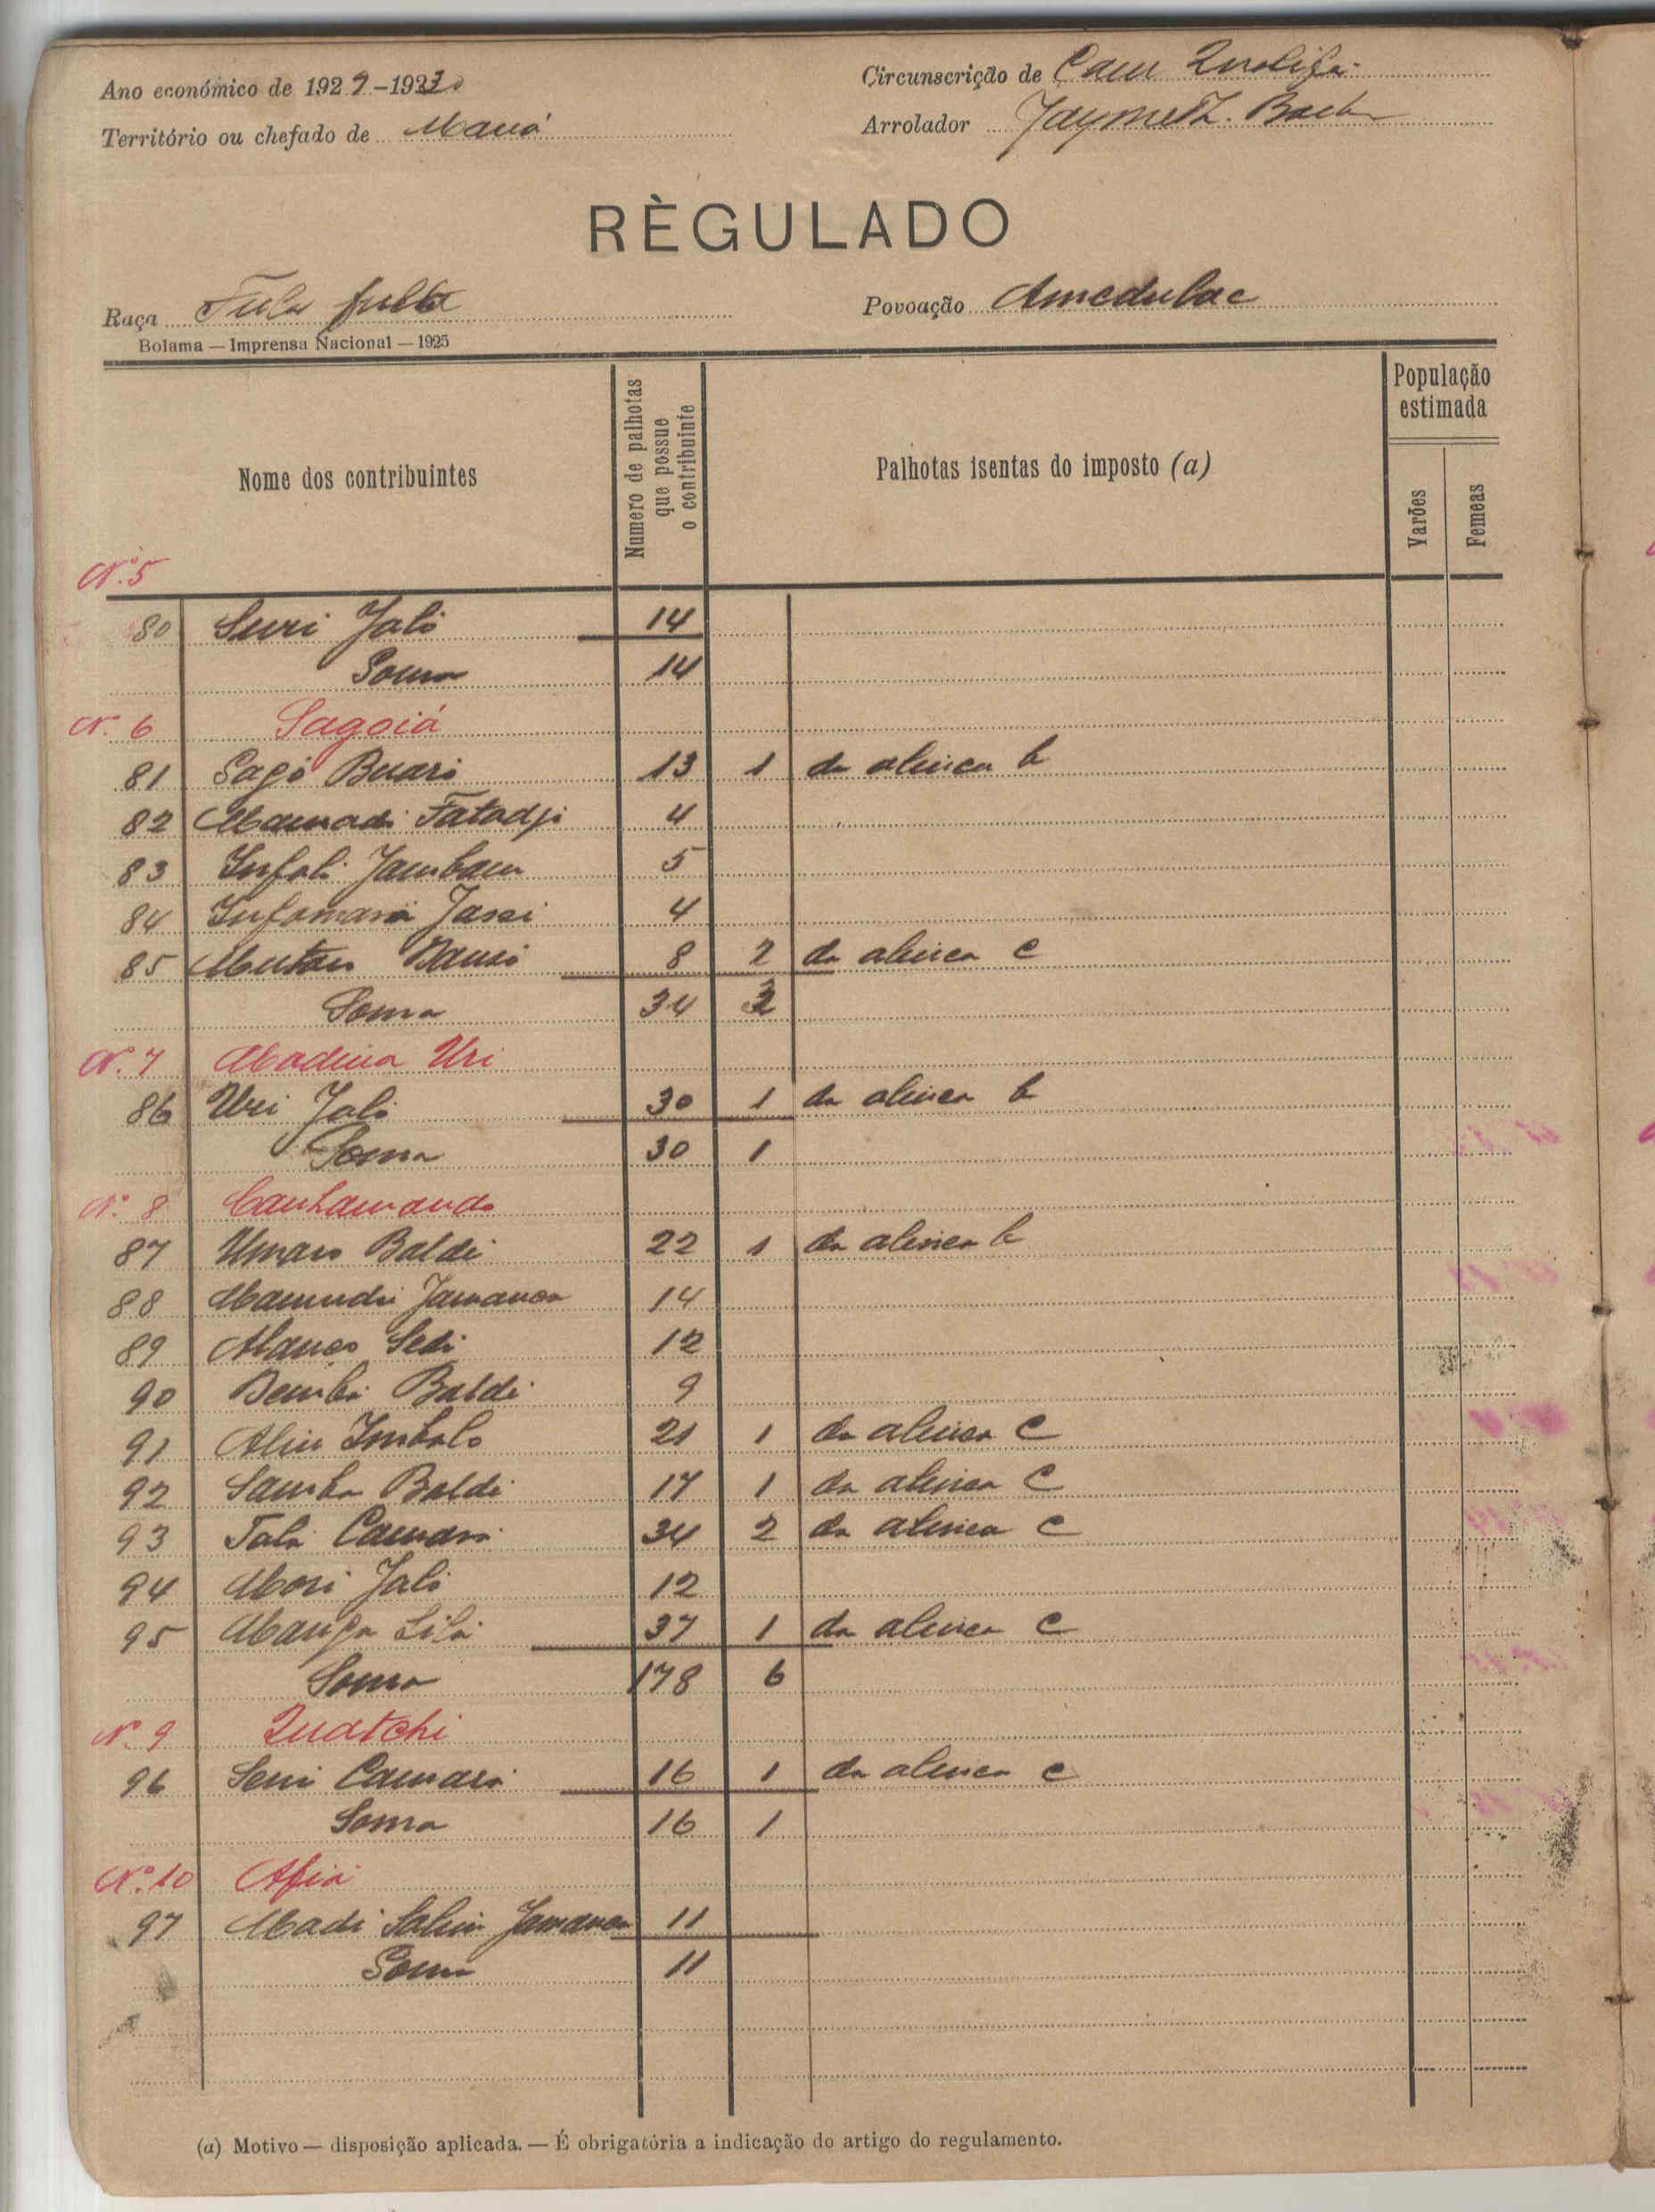 Ano económico de 1929-1930
Circunscrição de
Território ou chefado de Maná
Arrolador Jayme
RÈGULADO
Raça Fula
Povoação Amedulae
Bolama — Imprensa Nacional — 1925
Nome dos contribuintes
Numero de palhotas que possue o contribuinte
Palhotas isentas do imposto (a)
População estimada
Varões
Femeas
N.º 5
80 Suri Jaló 14
Soma 14
N.º 6 Sagoiá
81 Sagó Buaró 13 1 da alinea b
82 Mamadi Fatadji 4
83 Infali 5
84 Infamará Jassi 4
85 8 2 da alinea c
Soma 34 3
N.º 7 Madina Uri
86 Uri Jaló 30 1 da alinea b
Soma 30 1
N.º 8
87 Umaro Baldé 22 1 da alinea b
88 Mamudú Jamanca 14
89 12
90 Demba Baldé 9
91 Aliu Imbaló 21 1 da alinea c
92 Samba Baldé 17 1 da alinea c
93 Talá Camará 34 2 da alinea c
94 Mori Jaló 12
95 37 1 da alinea c
Soma 178 6
N.º 9 Quatchi
96 Seni Camará 16 1 da alinea c
Soma 16 1
N.º 10 Afiá
97 Madi Jamanca 11
Soma 11
(a) Motivo — disposição aplicada. — É obrigatória a indicação do artigo do regulamento.